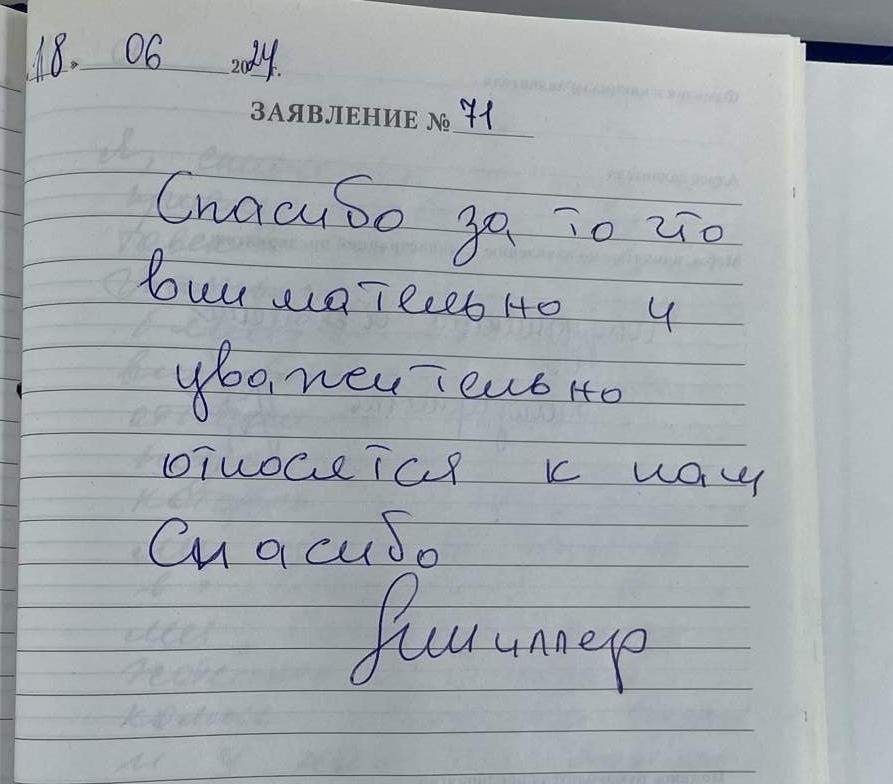 18. 06 2024.
ЗАЯВЛЕНИЕ № 71
Спасибо за то что
внимательно и
уважительно
относятся к нам
Спасибо